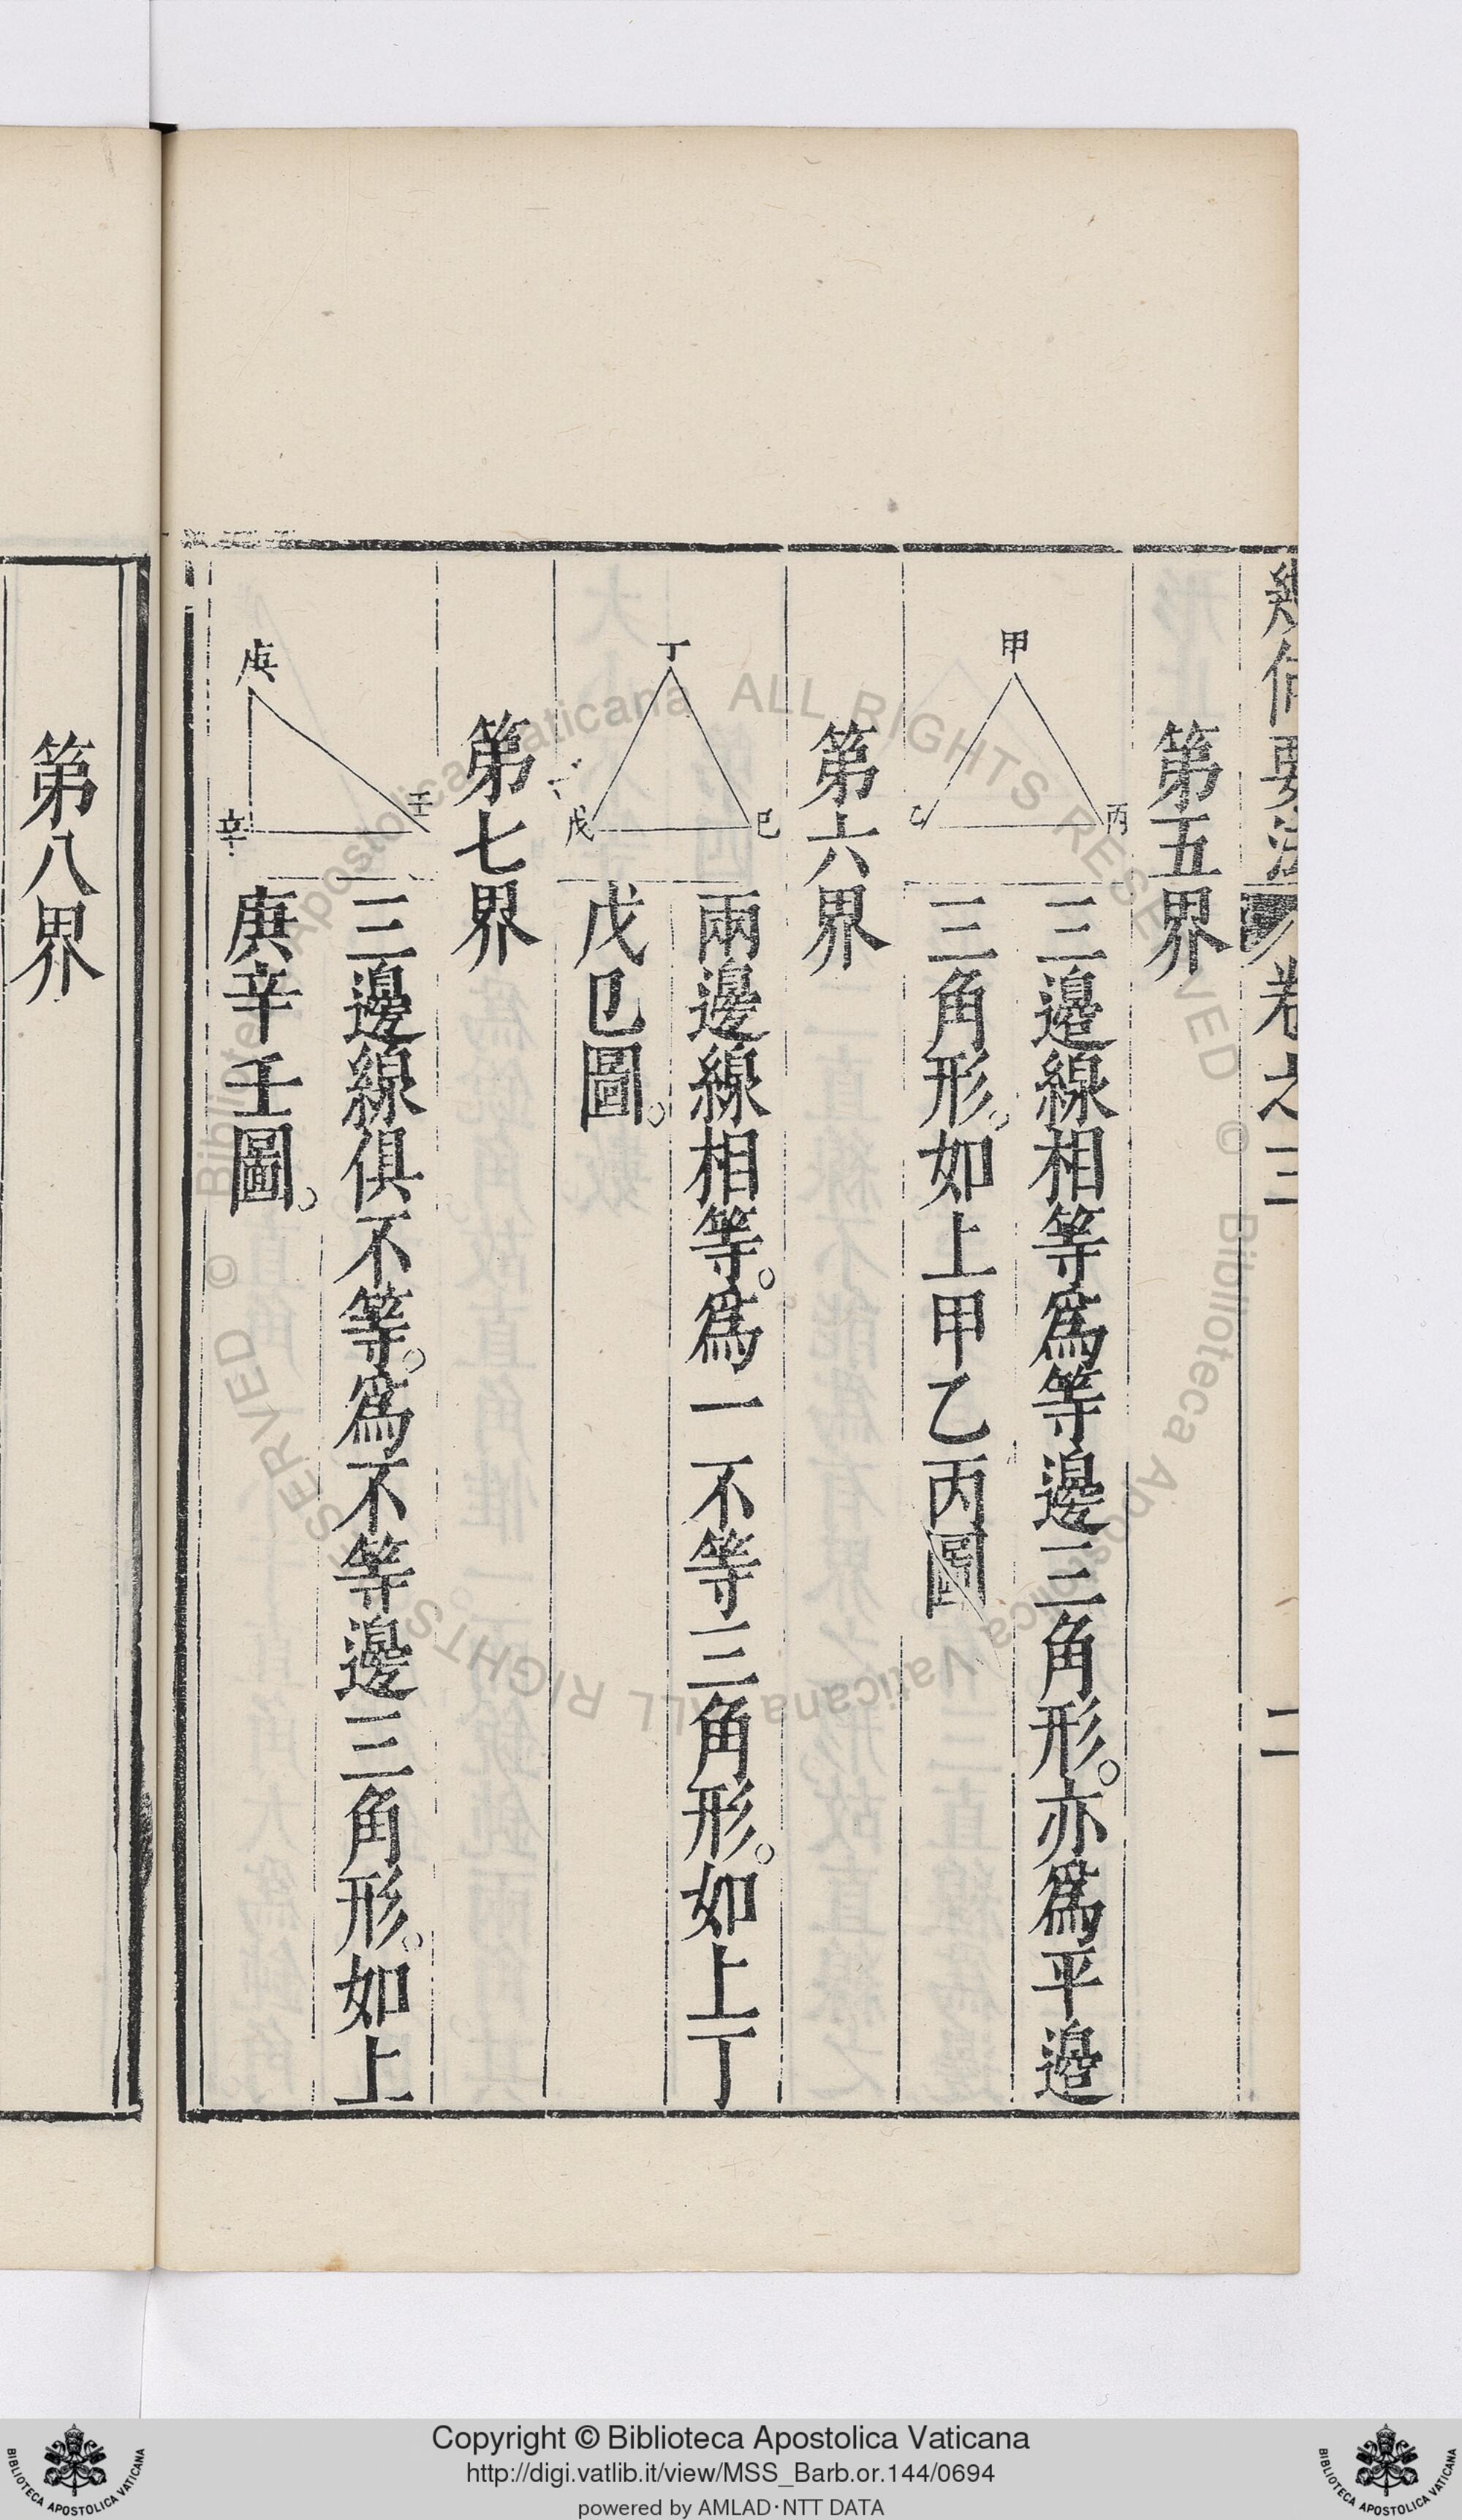 幾何要法
卷之三
二
第五界
三邊線相等爲等邊三角形。亦爲平邊
三角形。如上甲乙丙圖
甲
乙
丙
第六界
兩邊線相等。爲一不等三角形。如上丁
戊巳圖。
丁
戊
巳
第七界
三邊線俱不等。爲不等邊三角形。如上
庚辛壬圖。
庚
辛
壬
第八界
© Biblioteca Apostolica Vaticana ALL RIGHTS RESERVED © Biblioteca Apostolica Vaticana ALL RIGHTS RESERVED
BIBLIOTECA APOSTOLICA VATICANA
Copyright © Biblioteca Apostolica Vaticana
http://digi.vatlib.it/view/MSS_Barb.or.144/0694
powered by AMLAD·NTT DATA
BIBLIOTECA APOSTOLICA VATICANA